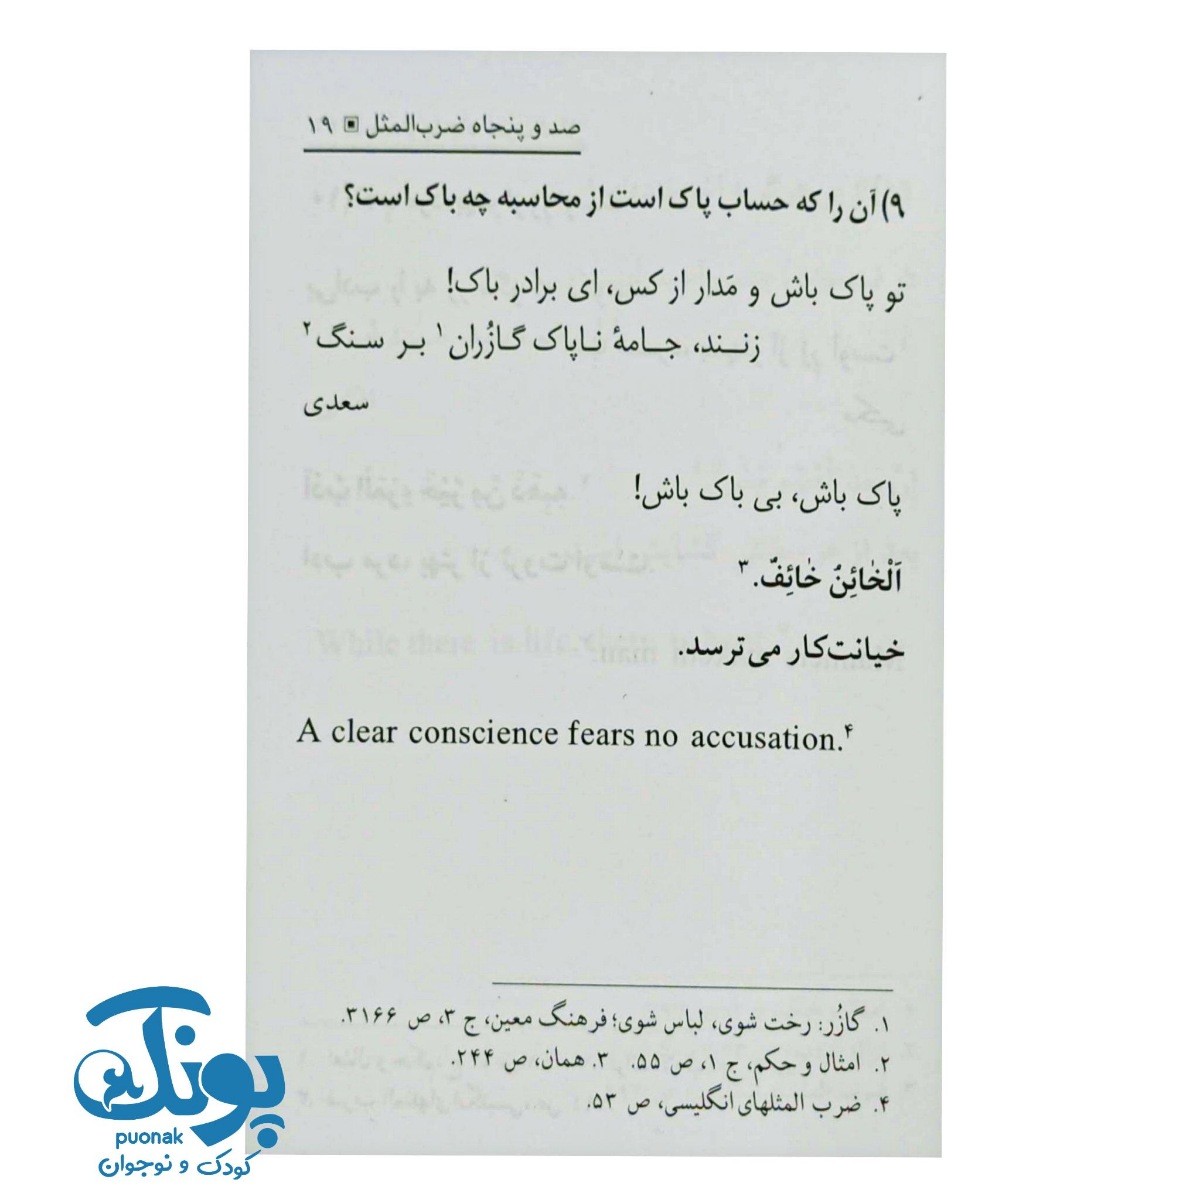 صد و پنجاه ضرب‌المثل ▣ ۱۹
۹) آن را که حساب پاک است از محاسبه چه باک است؟
تو پاک باش و مَدار از کس، ای برادر باک!
زنــند، جــامهٔ نــاپاک گــازُران۱ بــر ســنگ۲
سعدی
پاک باش، بی باک باش!
اَلْخٰائِنُ خٰائِفٌ.۳
خیانت‌کار می‌ترسد.
A clear conscience fears no accusation.۴
۱. گازُر: رخت شوی، لباس شوی؛ فرهنگ معین، ج ۳، ص ۳۱۶۶.
۲. امثال و حکم، ج ۱، ص ۵۵. ۳. همان، ص ۲۴۴.
۴. ضرب المثلهای انگلیسی، ص ۵۳.
پونک
puonak
کودک و نوجوان